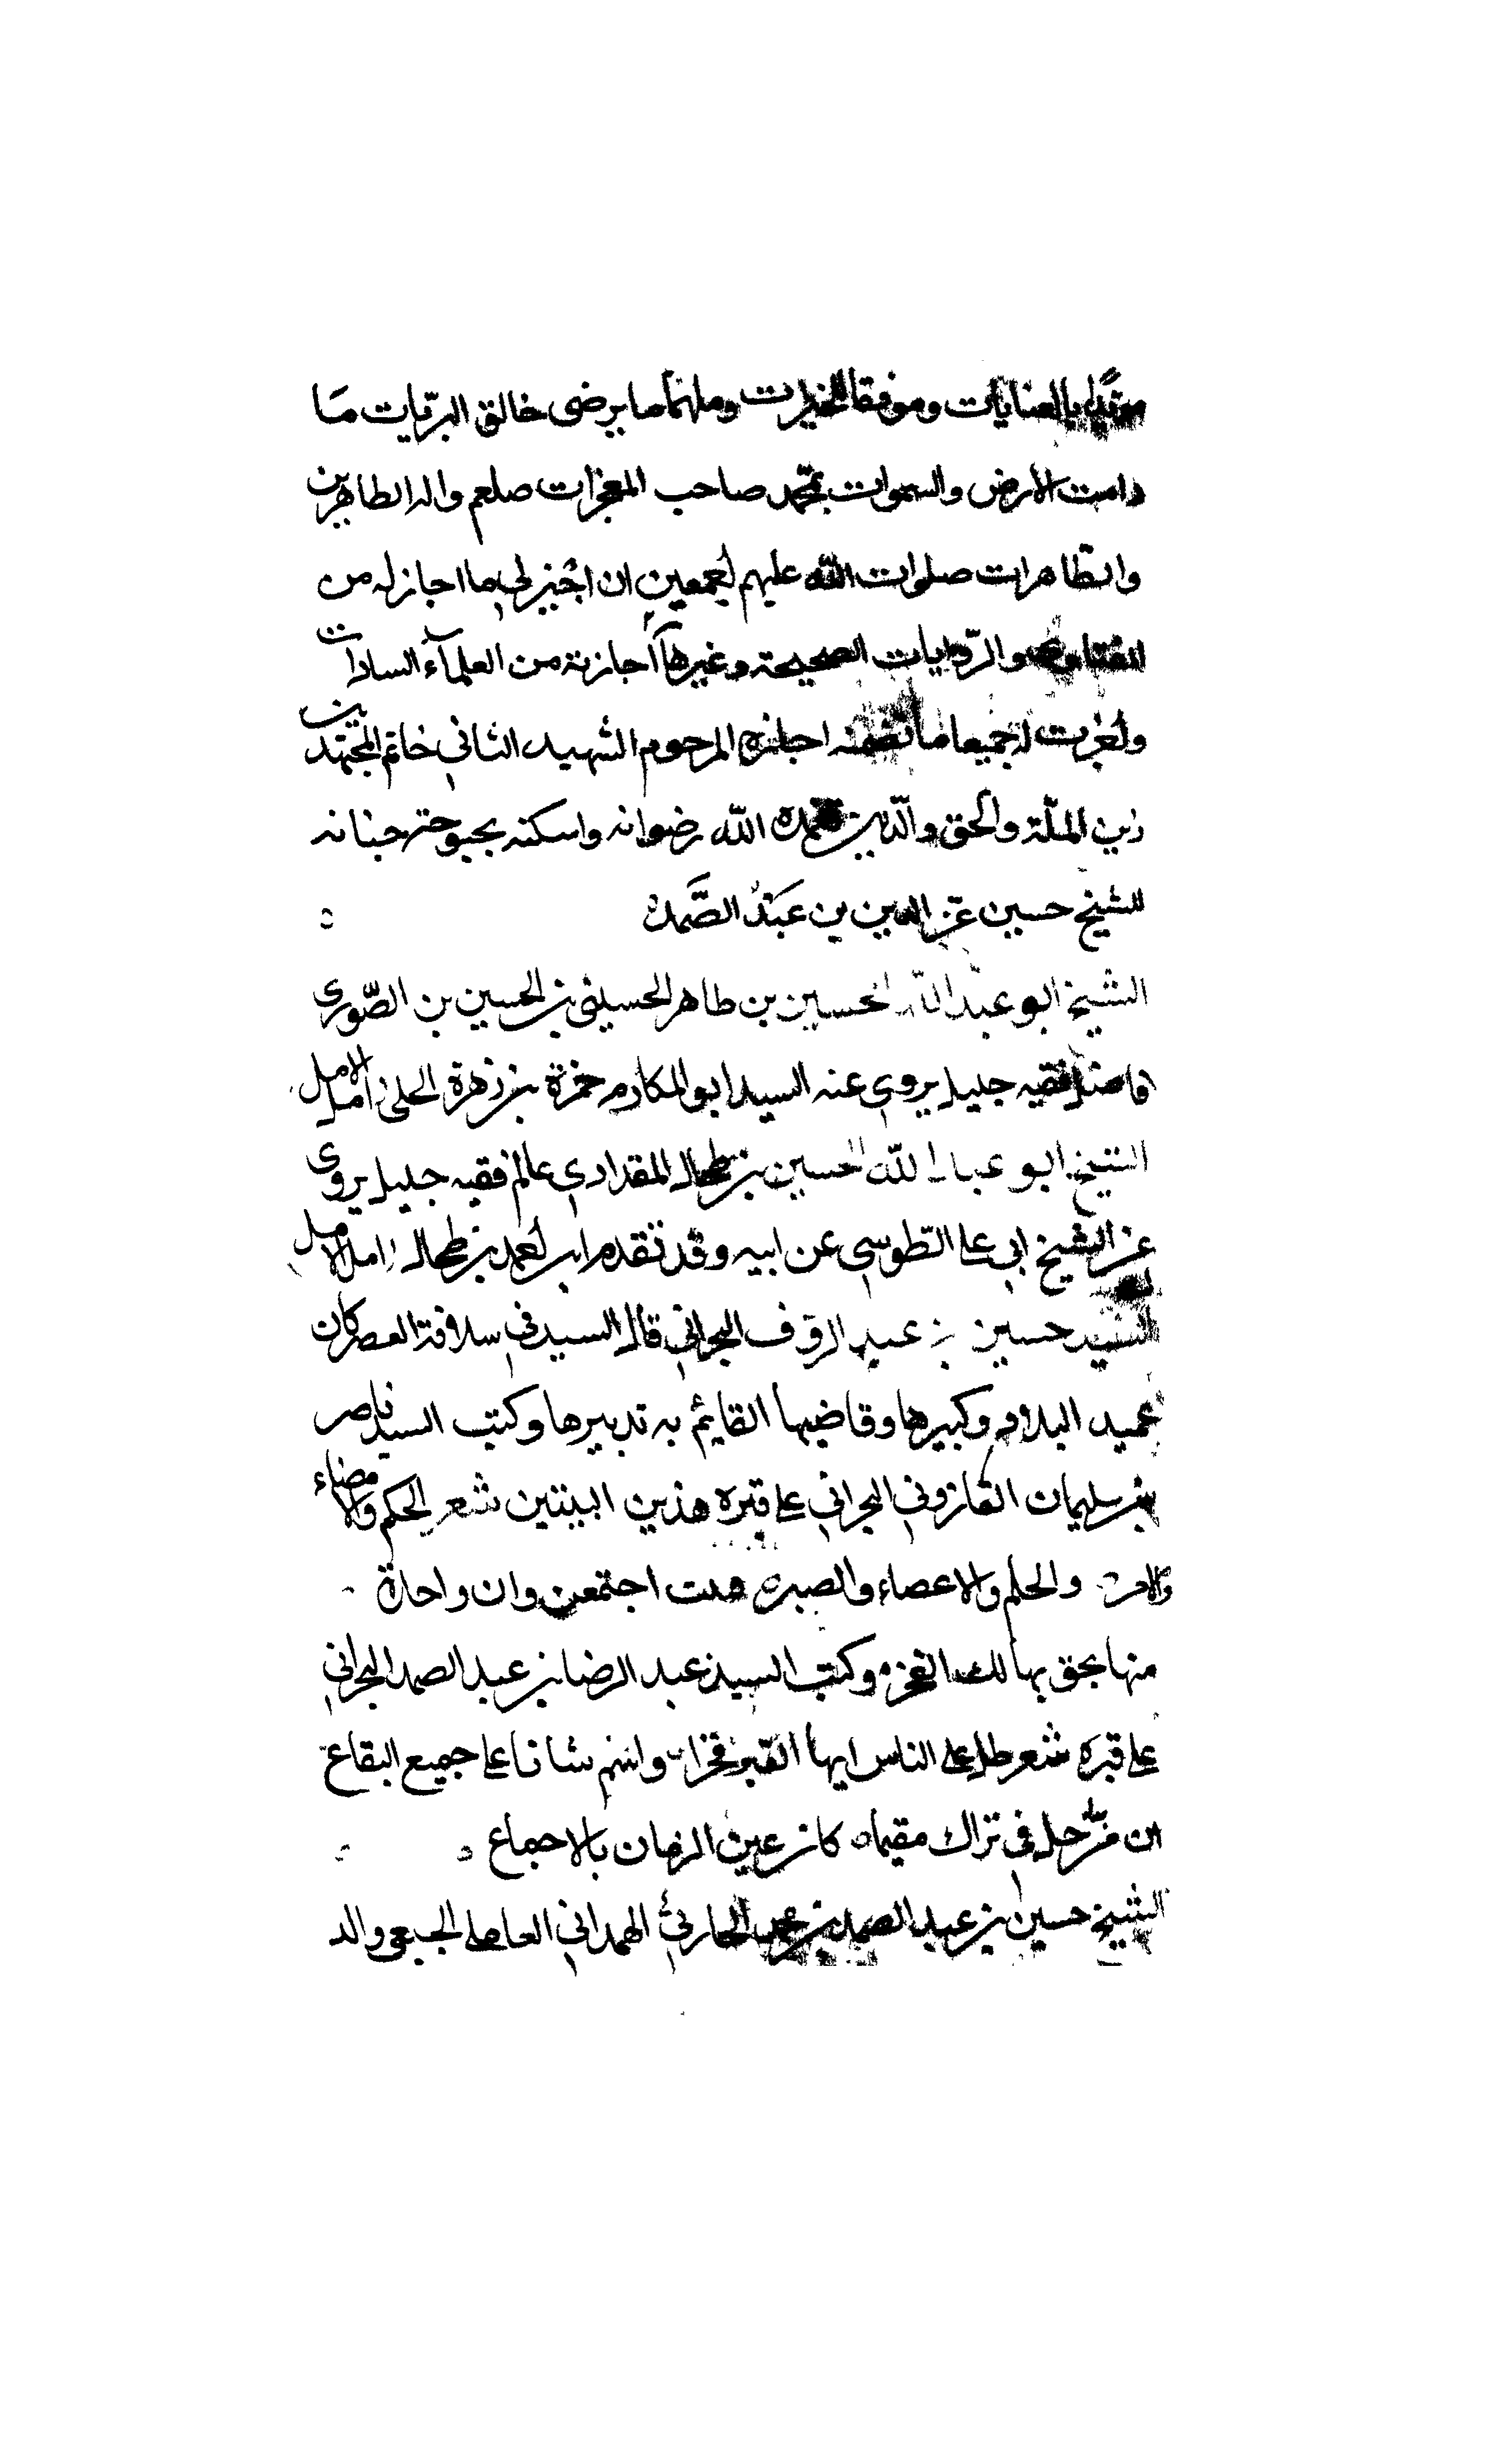 مؤيدا بالعنايات وموفقا للخيرات وملهما ما يرضى خالق البريات مَا
دامت الارض والسموات بمحمد صاحب المعجزات صلعم واله الطاهرين
والطاهرات صلوات الله عليهم اجمعين ان اجيز لي ما اجاز له من
الفتاوى والرّوايات الصحيحة وغيرها اجازة من العلمآء السادات
واجزت له جميعا ما تضمنه اجازة المرحوم الشهيد الثاني خاتم المجتهدين
زين الملّة والحق والدّين تغمده الله رضوانه واسكنه بحبوحة جنانه
للشيخ حسين عزّ الدين بن عبد الصَّمد
الشيخ ابو عبد الله الحسين بن طاهر الحسينى بن الحسين بن الصّورى
فاضل فقيه جليل يروي عنه السيد ابو المكارم حمزة بن زهرة الحلبى امل الامل
الشيخ ابو عبد الله الحسين بن طحال المقدادي عالم فقيه جليل يروى
عن الشيخ ابي على الطوسي عن ابيه وقد تقدم ابن احمد بن طحال امل الامل
السيد حسين بن عبد الرؤف البحراني قال السيد في سلافة العصر كان
عميد البلاد وكبيرها وقاضيها القايم به تدبيرها وكتب السيد ناصر
بن سليمان القازوني البحراني على قبره هذين البيتين شعر الحكم والامضاء
والامر والحلم والاعصاء والصبر قد اجتمعن وان واحدة
منها يحق بها لك الفخر وكتب السيد عبد الرضا بن عبد الصمد البحراني
على قبره شعر طل على الناس ايها القبر فخرا واسم شانا على جميع البقاع
ان من حل في تراك مقيما كان عين الزمان بالاجماع
الشيخ حسين بن عبد الصمد بن محمد الحارثي الهمداني العاملي الجبعي والد